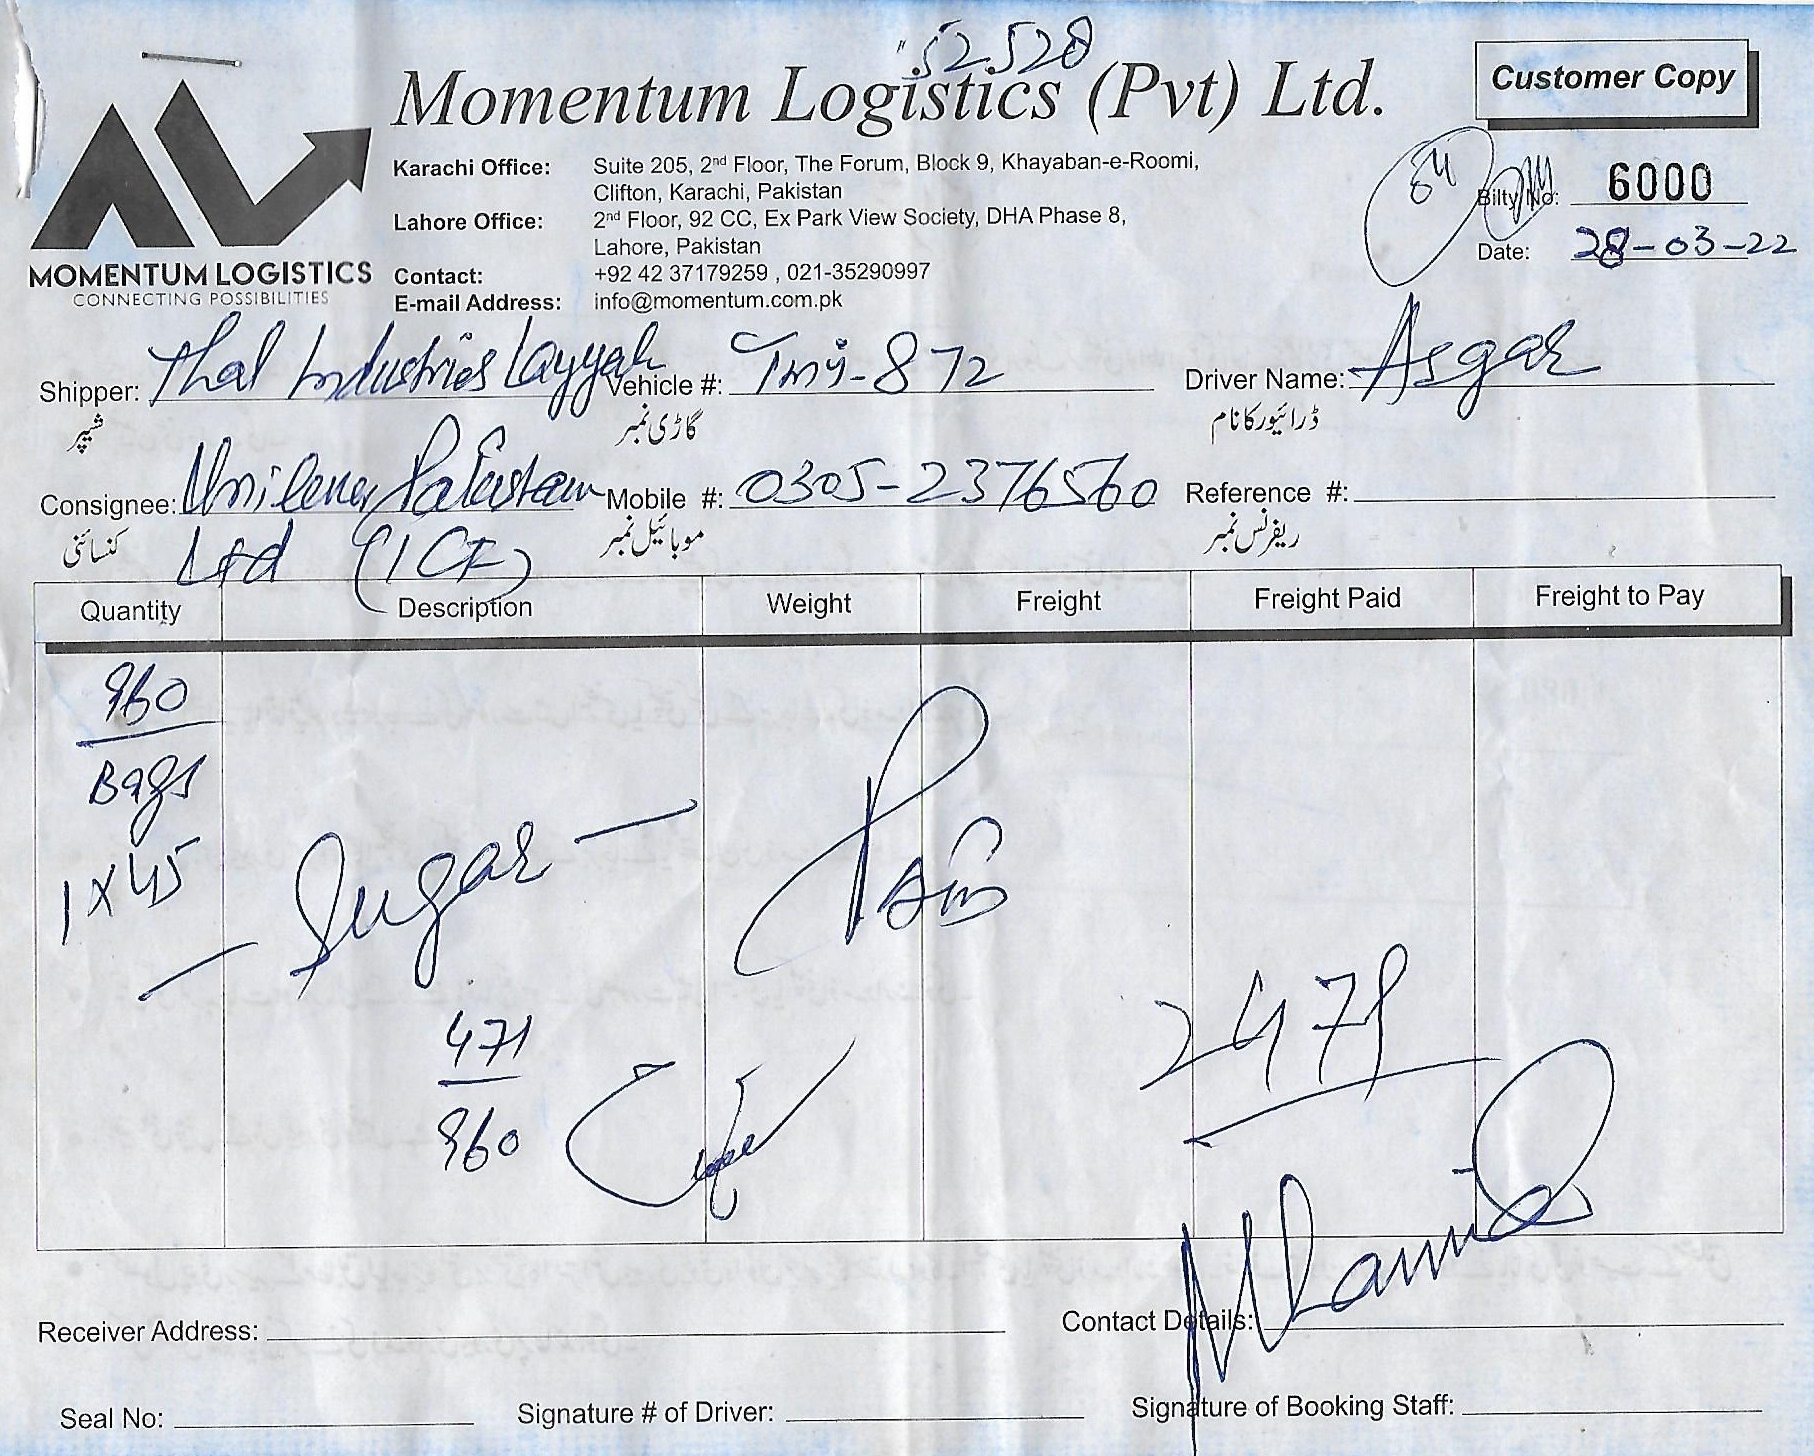 52.528
Momentum Logistics (Pvt) Ltd.
Customer Copy
MOMENTUM LOGISTICS
CONNECTING POSSIBILITIES
Karachi Office: Suite 205, 2nd Floor, The Forum, Block 9, Khayaban-e-Roomi,
Clifton, Karachi, Pakistan
Lahore Office: 2nd Floor, 92 CC, Ex Park View Society, DHA Phase 8,
Lahore, Pakistan
Contact: +92 42 37179259 , 021-35290997
E-mail Address: info@momentum.com.pk
Bilty No: 6000
Date: 28-03-22
Shipper: Thal Industries Layyah Vehicle #: TMY-872 Driver Name: Asgar
شیپر گاڑی نمبر ڈرائیور کا نام
Consignee: Unilever Pakistan Mobile #: 0305-2376560 Reference #:
کنسائنی Ltd (ICF) موبائیل نمبر ریفرنس نمبر
Quantity Description Weight Freight Freight Paid Freight to Pay
960
Bags
1X45
Sugar
Paid
2478
471
960
Receiver Address: Contact Details:
Seal No: Signature # of Driver: Signature of Booking Staff: